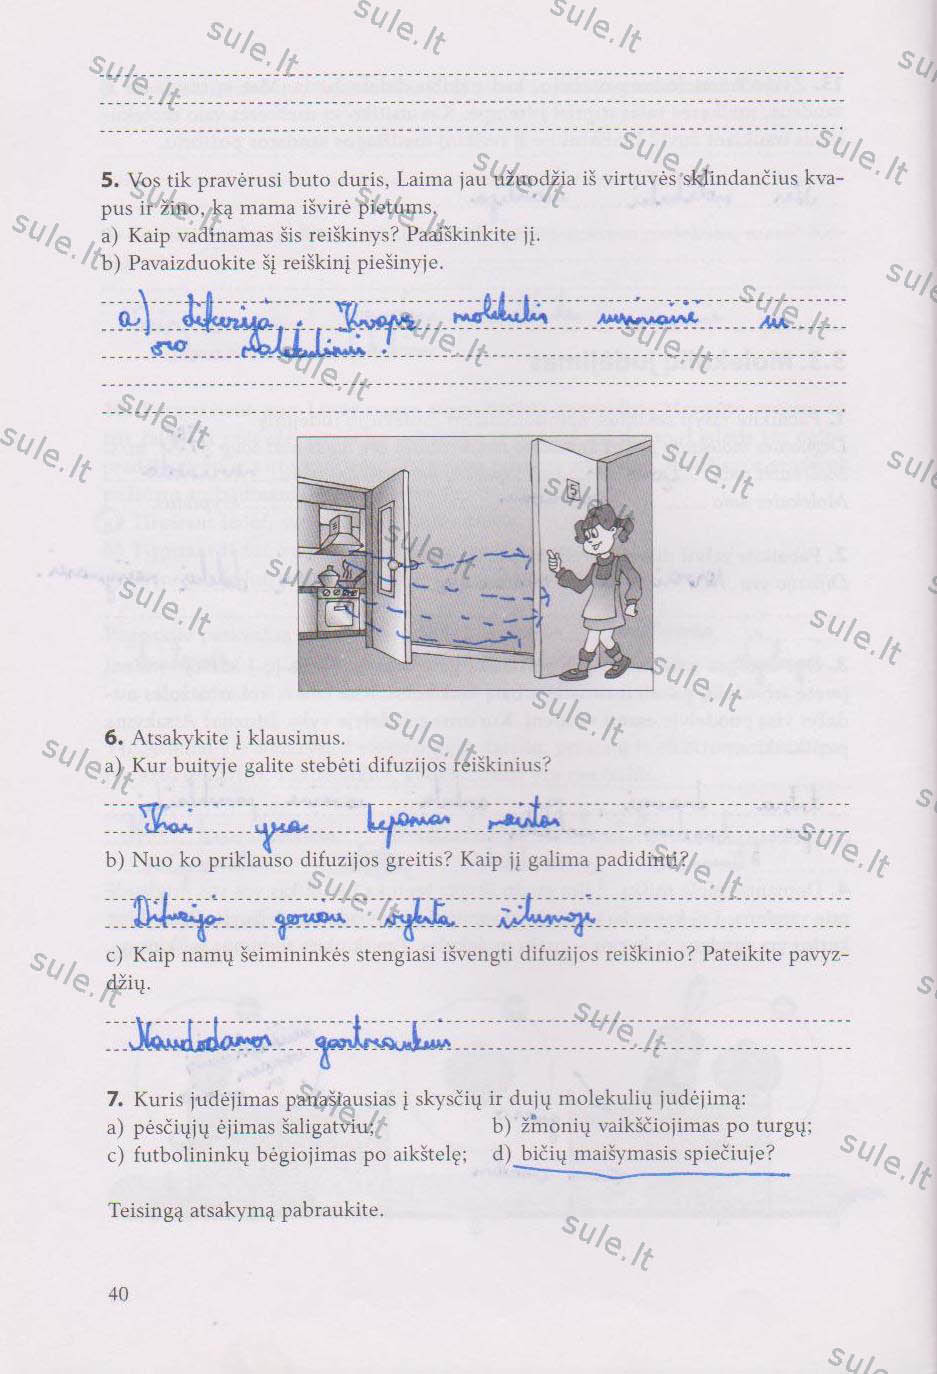 5. Vos tik pravėrusi buto duris, Laima jau užuodžia iš virtuvės sklindančius kva-
pus ir žino, ką mama išvirė pietums.
a) Kaip vadinamas šis reiškinys? Paaiškinkite jį.
b) Pavaizduokite šį reiškinį piešinyje.
a) difuzija. Kvapų molekulės susimaišė su
oro molekulėmis.
5
6. Atsakykite į klausimus.
a) Kur buityje galite stebėti difuzijos reiškinius?
Kai yra kepamas maistas
b) Nuo ko priklauso difuzijos greitis? Kaip jį galima padidinti?
Difuzija geriau vyksta šilumoje
c) Kaip namų šeimininkės stengiasi išvengti difuzijos reiškinio? Pateikite pavyz-
džių.
Naudodamos gartraukius
7. Kuris judėjimas panašiausias į skysčių ir dujų molekulių judėjimą:
a) pėsčiųjų ėjimas šaligatviu; b) žmonių vaikščiojimas po turgų;
c) futbolininkų bėgiojimas po aikštelę; d) bičių maišymasis spiečiuje?
Teisingą atsakymą pabraukite.
40
sule.lt